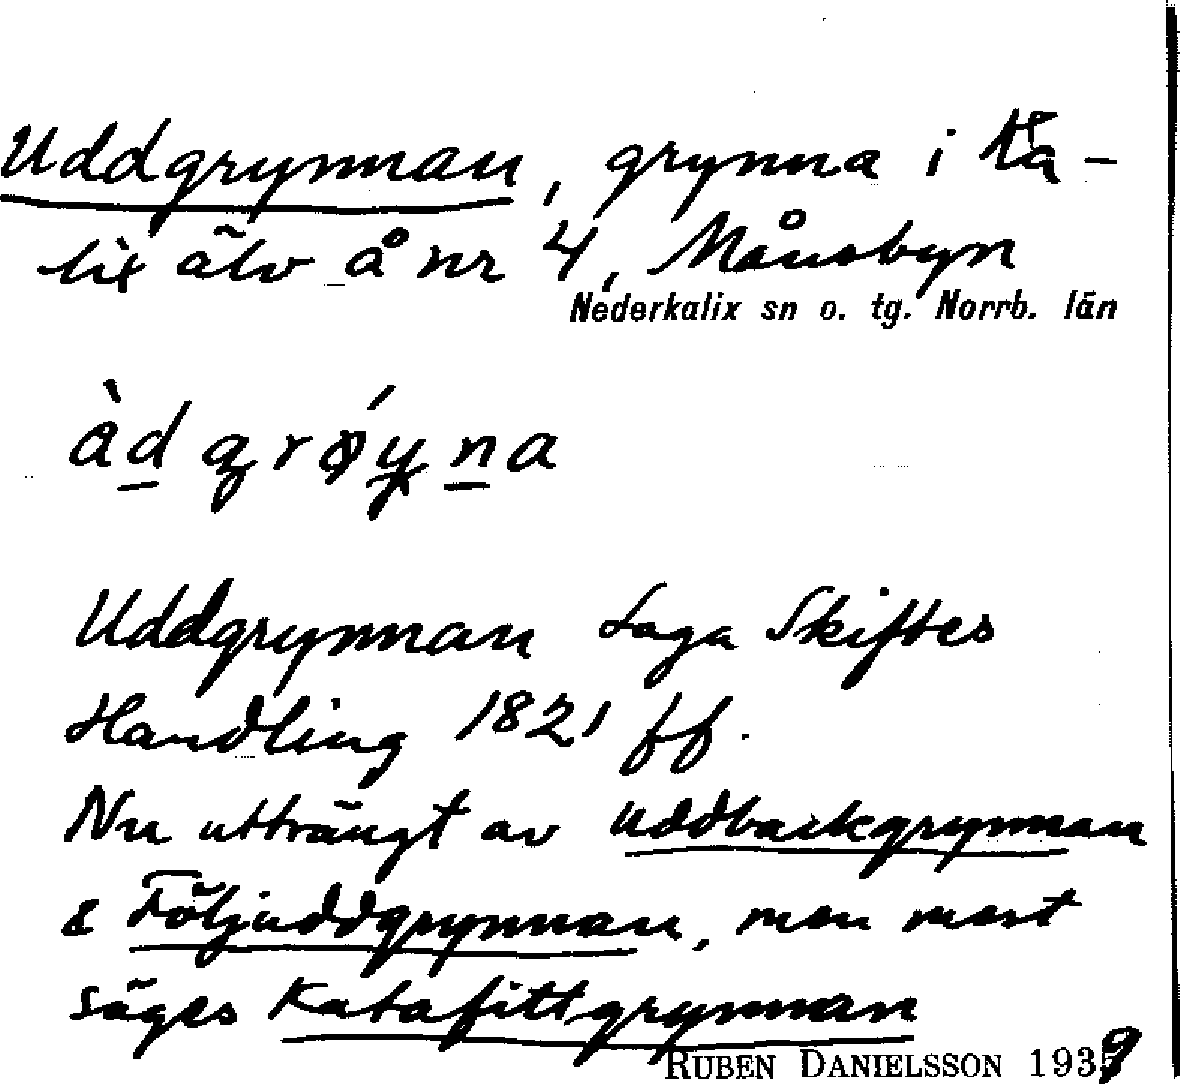 Uddgrynnan, grynna i Ka-
lix älv å nr 4, Månsbyn
Nederkalix sn o. tg. Norrb. län
àd grǿyna
Uddgrynnan Laga Skiftes
Handling 1821 ff.
Nu utträngt av Uddbackgrynnan
& Följuddgrynnan, men mest
säges Katafittgrynnan
RUBEN DANIELSSON 1939